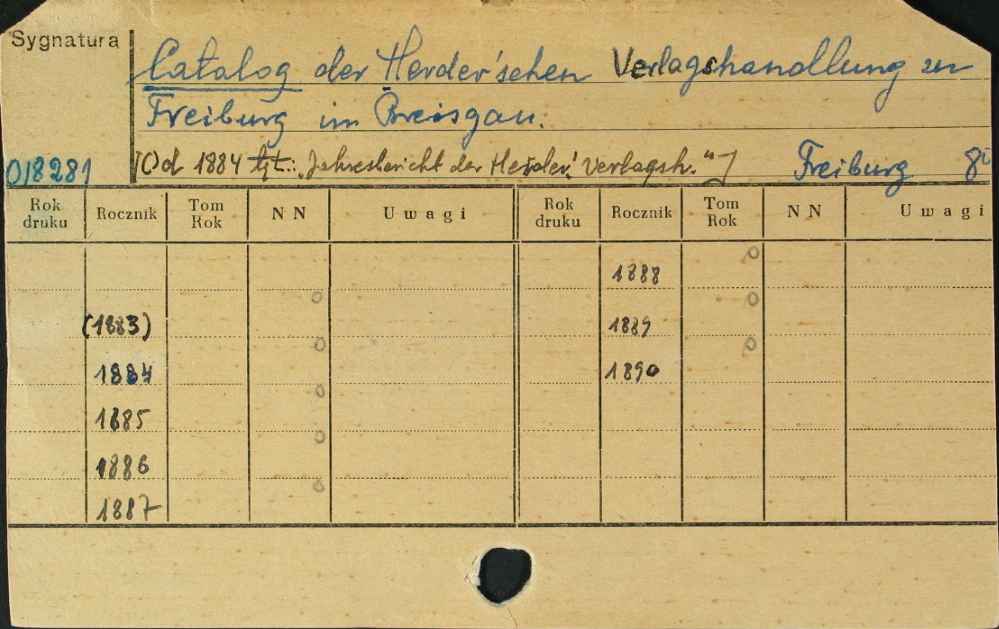 Sygnatura
Catalog der Herder'schen Verlagshandlung zu
Freiburg im Breisgau.
018281
[Od 1884 tyt.: "Jahresbericht der Herder' Verlagsh."]
Freiburg 8°
Rok druku Rocznik Tom Rok NN Uwagi Rok druku Rocznik Tom Rok NN Uwagi
(1883)
1884
1885
1886
1887
1888
1889
1890